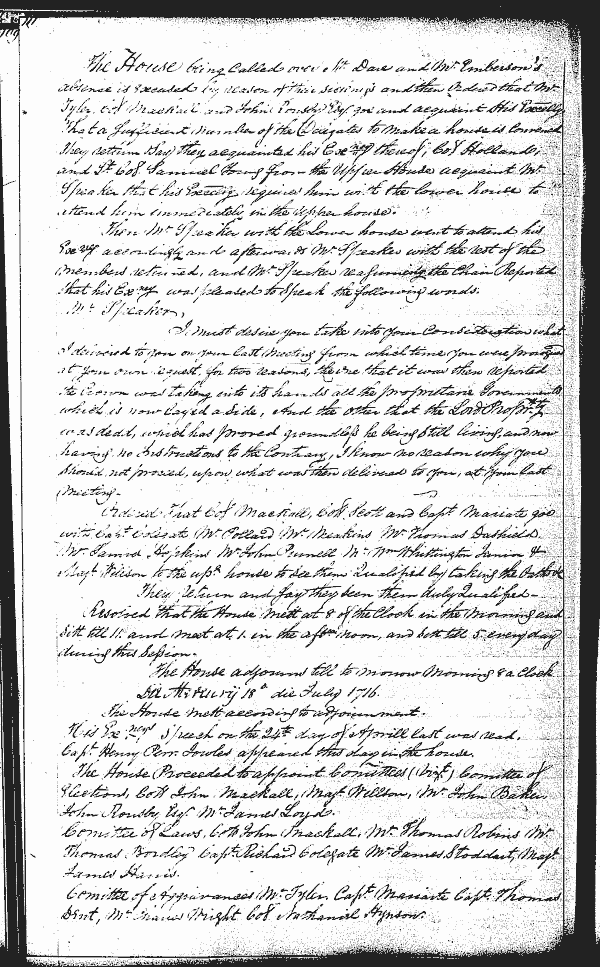 The House being Called over Mr Dare and Mr Emberson's
absence is Excused by reason of their sickness and then Ordered that Mr
Tyler, Coll Mackall and John Rousby Esqr goe and acquaint His Excellcy
That a Sufficient number of the Delegates to make a house is Convened
They return & Say They acquainted his Excncy thereof, Coll Holland,
and Lt Coll Samuel Young from the Upper House acquaint Mr
Speaker that his Excncy requires him with the lower house to
attend him immediately in the upper house.
Then Mr Speaker with the Lower house went to attend his
Excncy accordingly and afterwards Mr Speaker with the rest of the
members returned, and Mr Speaker reassuming the Chair Reported
that his Excncy was pleased to Speak the following words.
Mr Speaker,
I must desire you take into your Consideration what
I delivered to you on your last Meeting from which time you were prorogued
at your own request, for two reasons, the one that it was then reported
the Crown was taking into its hands all the proprietaire Governments
which is now layed aside, And the other that the Lord Propry
was dead, which has proved groundless he being Still living, and now
having no instructions to the Contrary, I know no reason why you
Should not proceed, upon what was then delivered to you, at your last
Meeting.
Ordered That Coll Mackall, Coll Scott and Capt Mariate goe
with Capt Colegate Mr Pollard Mr Meakins Mr Thomas Dashield
Mr James Hopkins Mr John Purnell Mr Wm Whittington Junior &
Majr Willson to the uppr house to See them Qualified by taking the Oaths &c
They return and Say they Seen them duly Qualified—
Resolved that the House mett at 8 of the Clock in the Morning and
Sitt till 11 and meet at 1 in the afternoon, and Sett till 5 every day
during this Session.
The House adjourns till to morrow Morning 8 a Clock
Die Mercurij 18o die July 1716.
The House mett according to adjournment.
His Excncys Speech on the 24th day of Aprill last was read.
Capt Henry Peregr Jowles appeared this day in the house.
The House Proceeded to appoint Comittees (Vizt) Comittee of
Elections, Coll John Mackall, Majr Willson, Mr John Baker
John Rousby Esqr Mr James Loyd.
Comittee of Laws, Coll John Mackall, Mr Thomas Robins Mr
Thomas Bordley Capt Richard Colegate Mr James Stoddart, Majr
James Harris.
Comittee of Aggrievances Mr Tyler, Capt Mariarte Capt Thomas
Dent, Mr Francis Wright Coll Nathaniel Hynson.